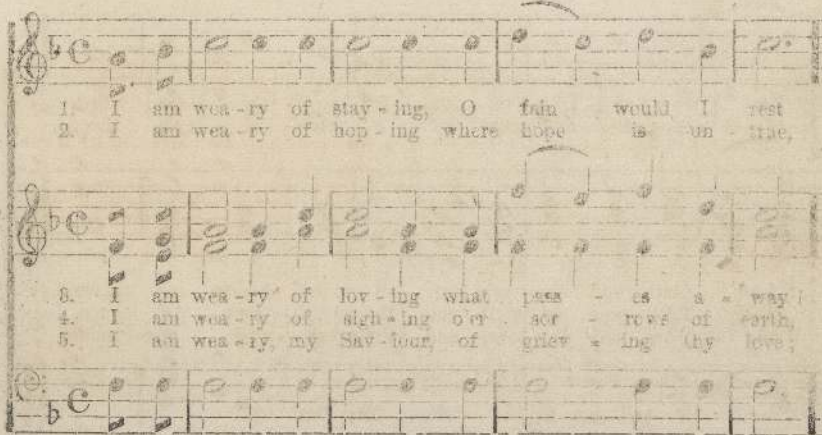 1. I am wea-ry of stay-ing, O fain would I rest
2. I am wea-ry of hop-ing where hope is un-true,
3. I am wea-ry of lov-ing what pass-es a-way!
4. I am wea-ry of sigh-ing o'er sor-rows of earth,
5. I am wea-ry, my Sav-iour, of griev-ing thy love;